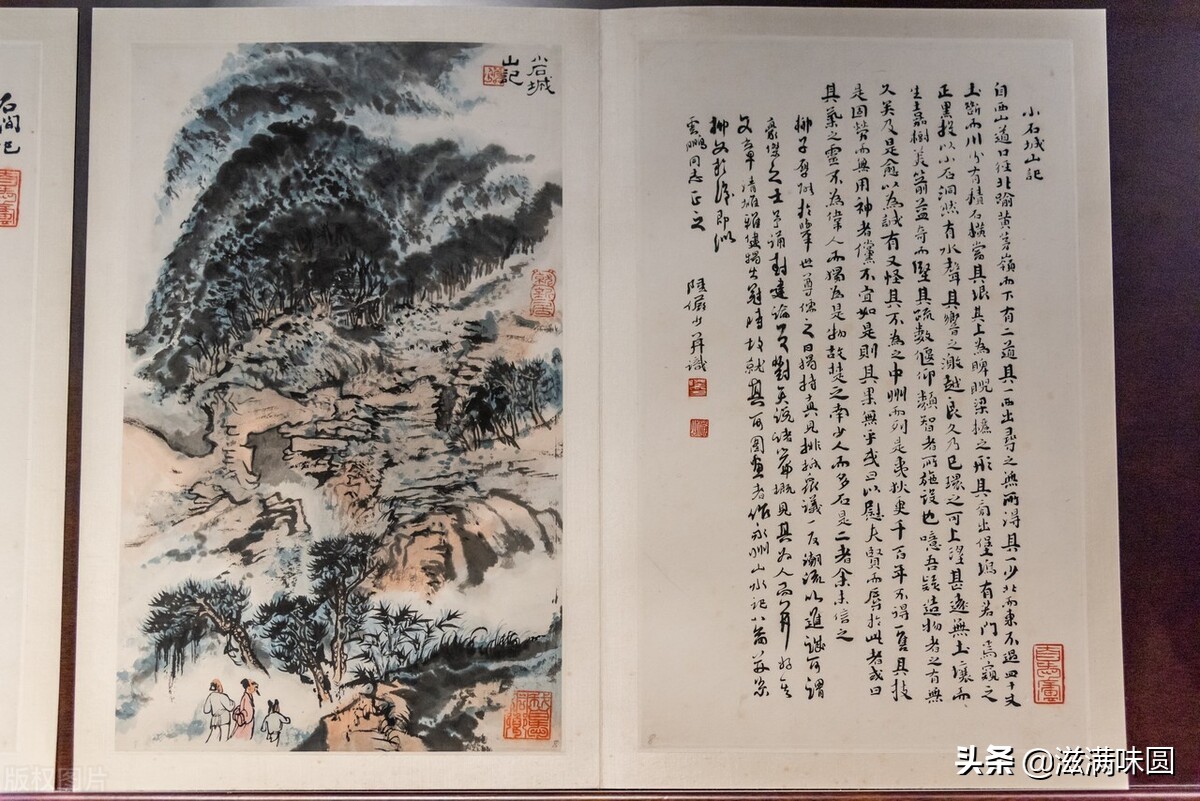 石澗記
小石城
山記
小石城山記
自西山道口徑北踰黃茅嶺而下有二道其一西出尋之無所得其一少北而東不過四十丈
土斷而川分有積石橫當其垠其上為睥睨梁欐之形其旁出堡塢有若門焉窺之
正黑投以小石洞然有水聲其響之激越良久乃已環之可上望甚遠無土壤而
生嘉樹美箭益奇而堅其疏數偃仰類智者所施設也噫吾疑造物者之有無
久矣及是愈以為誠有又怪其不為之中州而列是夷狄更千百年不得一售其技
是固勞而無用神者儻不宜如是則其果無乎或曰以慰夫賢而辱於此者或曰
其氣之靈不為偉人而獨為是物故楚之南少人而多石是二者余未信之
柳子厚世尊儒之日獨持真見排抵眾議一反潮流以進可謂
豪傑之士予誦封建論天對天說諸篇概見其為人而
文章清雄雅健獨出冠時故就其可圖畫者作永州山水記八篇并錄
柳文於後即以
雲鵬同志正之
陸儼少并識
版权图片
头条 @滋满味圆